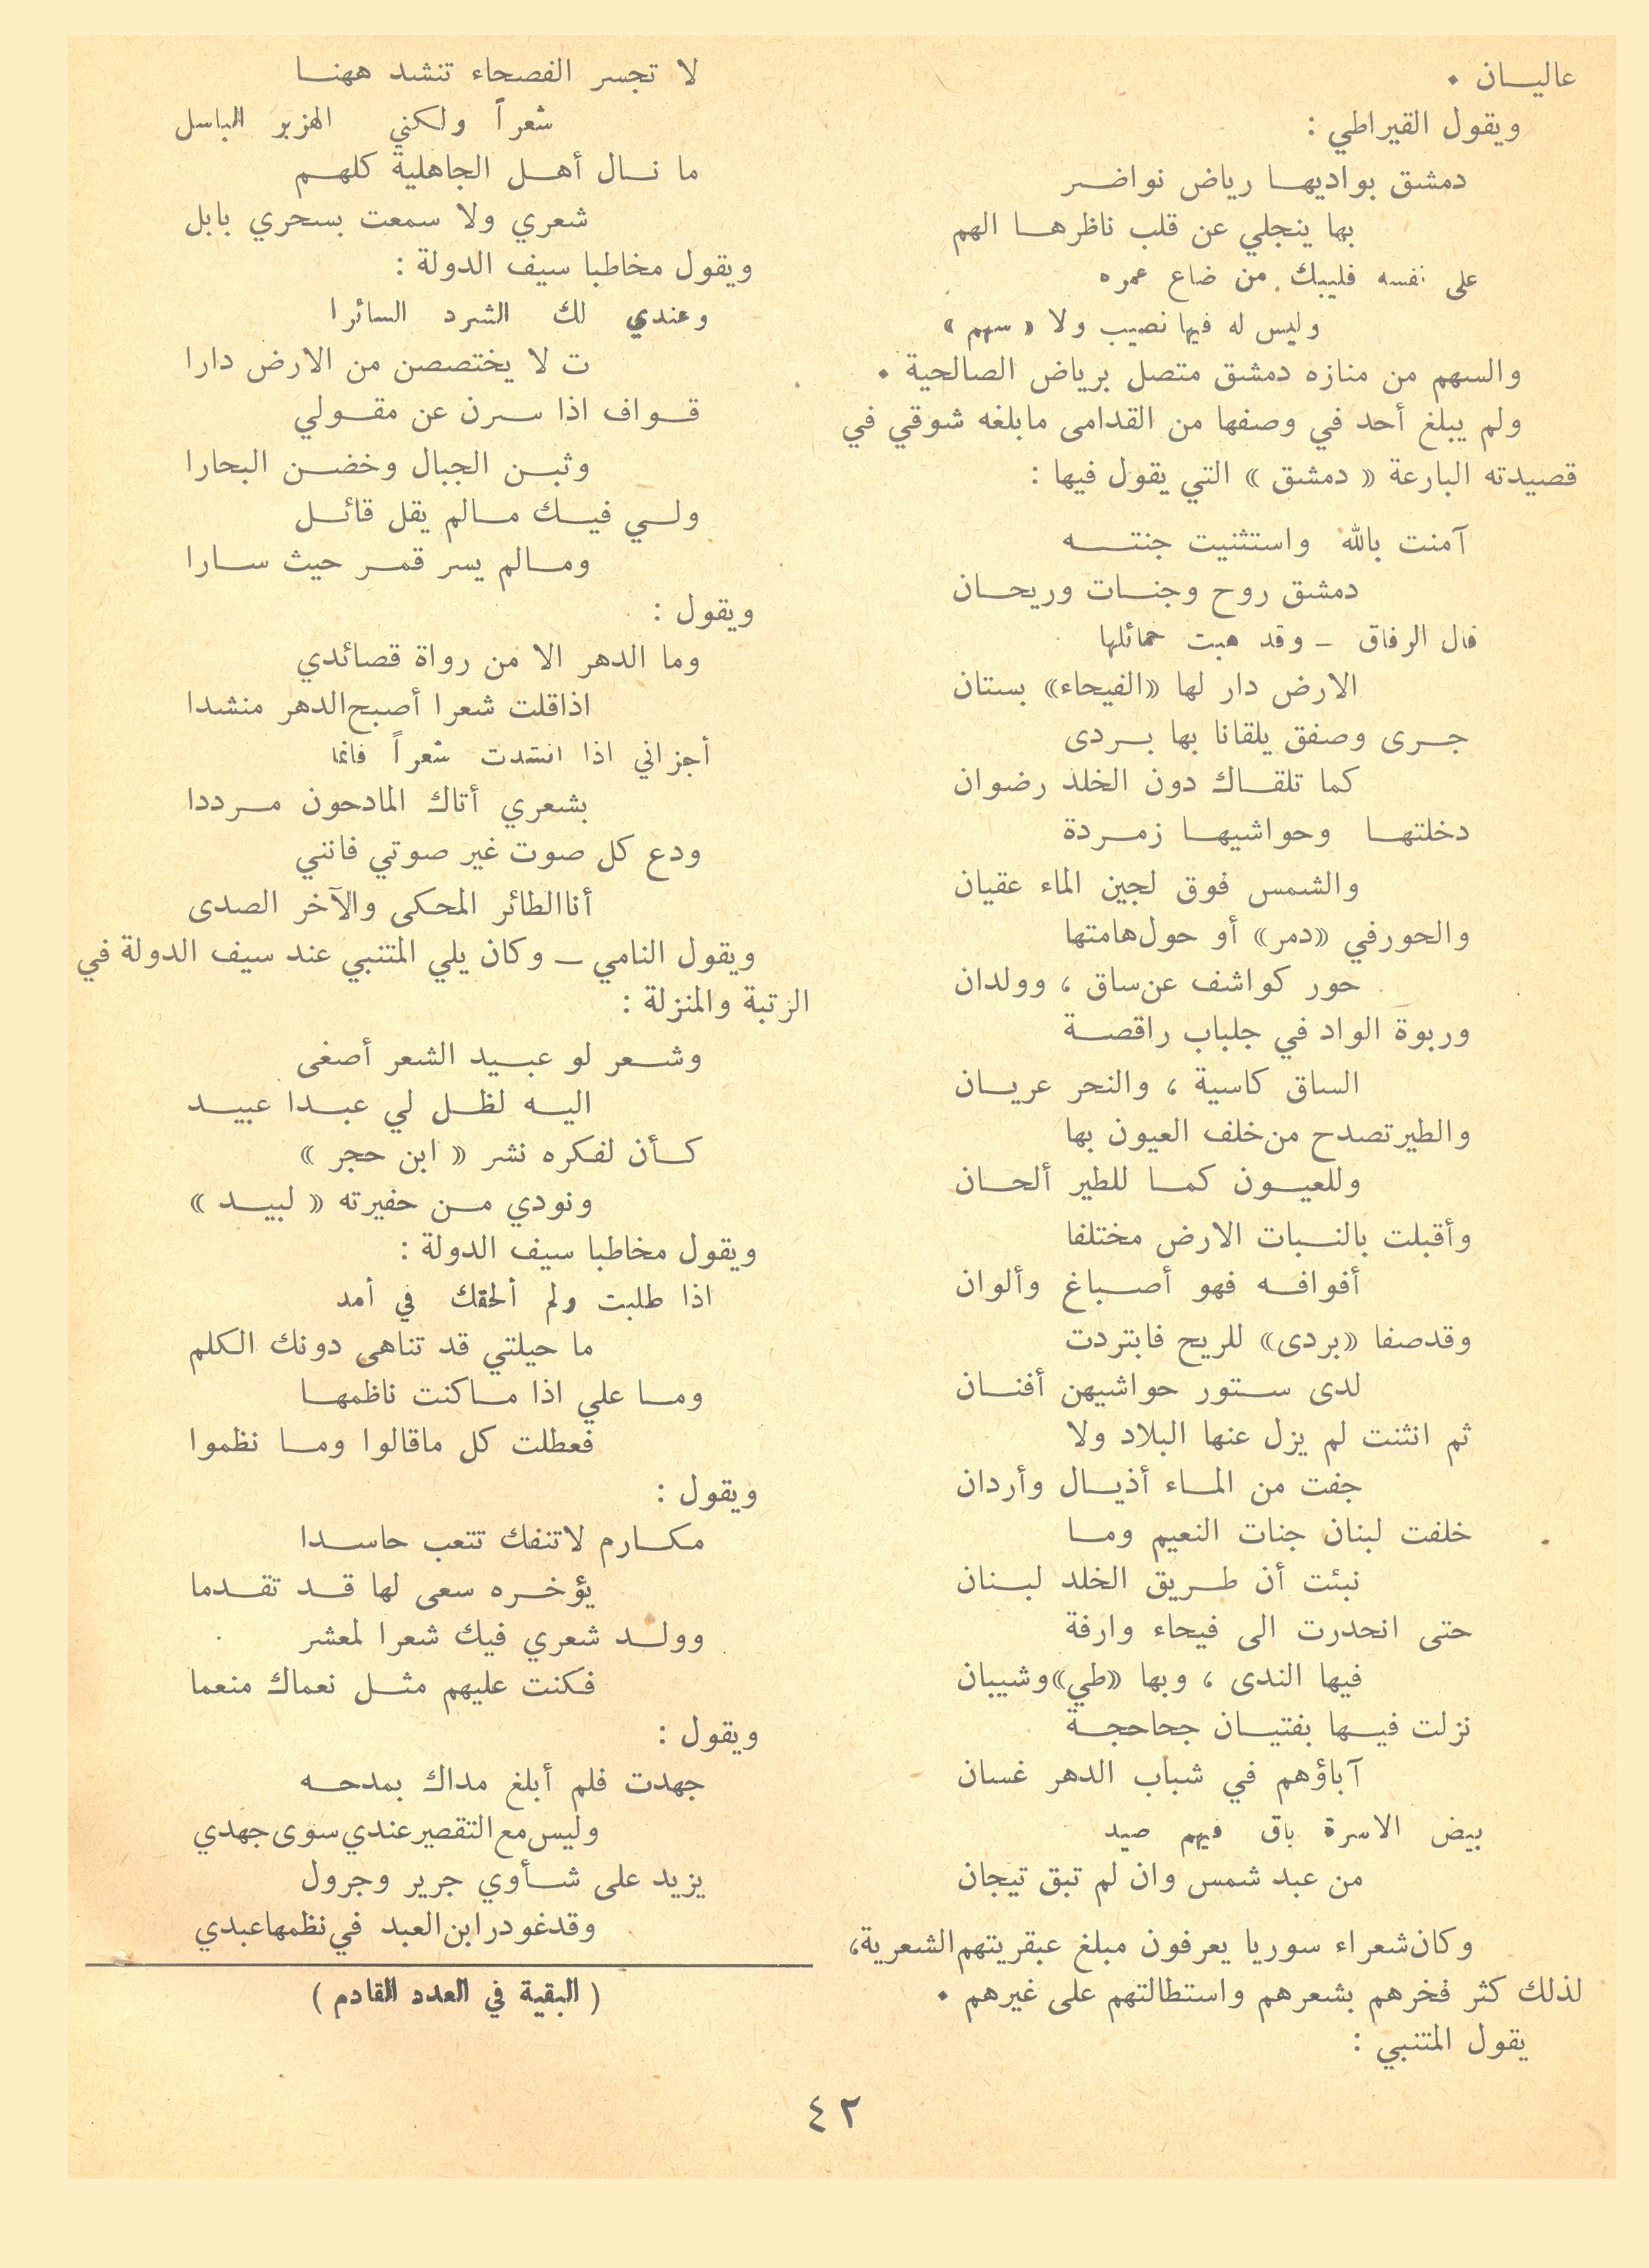 عاليان .
ويقول القيراطي :
دمشق بواديها رياض نواضر
بها ينجلي عن قلب ناظرها الهم
على نفسه فليبك من ضاع عمره
وليس له فيها نصيب ولا « سهم »
والسهم من منازه دمشق متصل برياض الصالحية .
ولم يبلغ أحد في وصفها من القدامى مابلغه شوقي في
قصيدته البارعة « دمشق » التي يقول فيها :
آمنت بالله واستثنيت جنته
دمشق روح وجنات وريحان
قال الرفاق – وقد هبت خمائلها
الارض دار لها «الفيحاء» بستان
جرى وصفق يلقانا بها بردى
كما تلقاك دون الخلد رضوان
دخلتها وحواشيها زمردة
والشمس فوق لجين الماء عقيان
والحور في «دمر» أو حول هامتها
حور كواشف عن ساق ، وولدان
وربوة الواد في جلباب راقصة
الساق كاسية ، والنحر عريان
والطير تصدح من خلف العيون بها
وللعيون كما للطير ألحان
وأقبلت بالنبات الارض مختلفا
أفوافه فهو أصباغ وألوان
وقد صفا «بردى» للريح فابتردت
لدى ستور حواشيهن أفنان
ثم انثنت لم يزل عنها البلاد ولا
جفت من الماء أذيال وأردان
خلفت لبنان جنات النعيم وما
نبئت أن طريق الخلد لبنان
حتى انحدرت الى فيحاء وارفة
فيها الندى ، وبها «طي» وشيبان
نزلت فيها بفتيان جحاجحة
آباؤهم في شباب الدهر غسان
بيض الاسرة باق فيهم صيد
من عبد شمس وان لم تبق تيجان
وكان شعراء سوريا يعرفون مبلغ عبقريتهم الشعرية،
لذلك كثر فخرهم بشعرهم واستطالتهم على غيرهم .
يقول المتنبي :
لا تجسر الفصحاء تنشد ههنا
شعراً ولكني الهزبر الباسل
ما نال أهل الجاهلية كلهم
شعري ولا سمعت بسحري بابل
ويقول مخاطبا سيف الدولة :
وعندي لك الشرد السائرا
ت لا يختصصن من الارض دارا
قواف اذا سرن عن مقولي
وثبن الجبال وخضن البحارا
ولي فيك مالم يقل قائل
ومالم يسر قمر حيث سارا
ويقول :
وما الدهر الا من رواة قصائدي
اذا قلت شعرا أصبح الدهر منشدا
أجزاني اذا انشدت شعراً فانما
بشعري أتاك المادحون مرددا
ودع كل صوت غير صوتي فانني
أنا الطائر المحكى والآخر الصدى
ويقول النامي – وكان يلي المتنبي عند سيف الدولة في
الرتبة والمنزلة :
وشعر لو عبيد الشعر أصغى
اليه لظل لي عبدا عبيد
كأن لفكره نشر « ابن حجر »
ونودي من حفيرته « لبيد »
ويقول مخاطبا سيف الدولة :
اذا طلبت ولم ألحقك في أمد
ما حيلتي قد تناهى دونك الكلم
وما علي اذا ماكنت ناظمها
فعطلت كل ماقالوا وما نظموا
ويقول :
مكارم لاتنفك تتعب حاسدا
يؤخره سعى لها قد تقدما
وولد شعري فيك شعرا لمعشر
فكنت عليهم مثل نعماك منعما
ويقول :
جهدت فلم أبلغ مداك بمدحه
وليس مع التقصير عندي سوى جهدي
يزيد على شأوي جرير وجرول
وقد غودر ابن العبد في نظمها عبدي
( البقية في العدد القادم )
٤٢